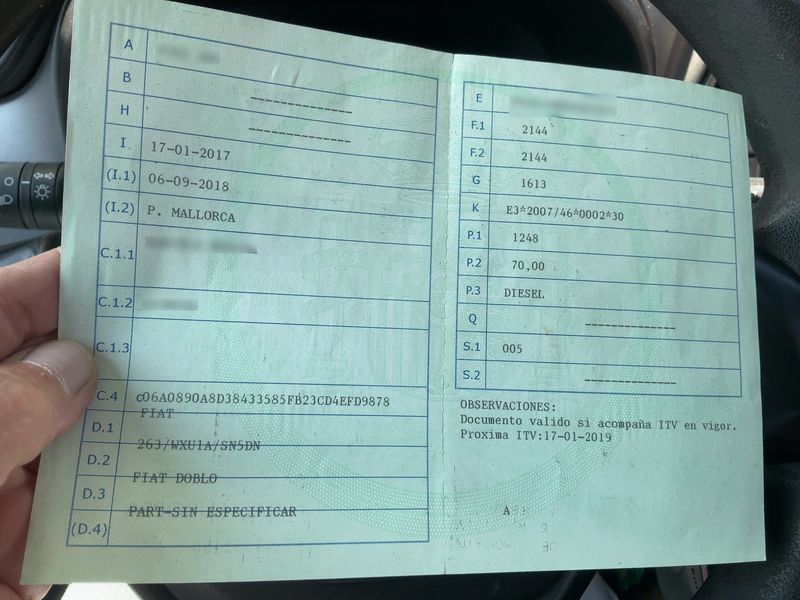 A
B ----------------
H ----------------
I 17-01-2017
(I.1) 06-09-2018
(I.2) P. MALLORCA
C.1.1
C.1.2
C.1.3
C.4 c06A0890A8D38433585FB23CD4EFD9878
D.1 FIAT
D.2 263/WXU1A/SN5DN
D.3 FIAT DOBLO
(D.4) PART-SIN ESPECIFICAR
E
F.1 2144
F.2 2144
G 1613
K E3*2007/46*0002*30
P.1 1248
P.2 70,00
P.3 DIESEL
Q --------------
S.1 005
S.2 --------------
OBSERVACIONES:
Documento valido si acompaña ITV en vigor.
Proxima ITV:17-01-2019
A